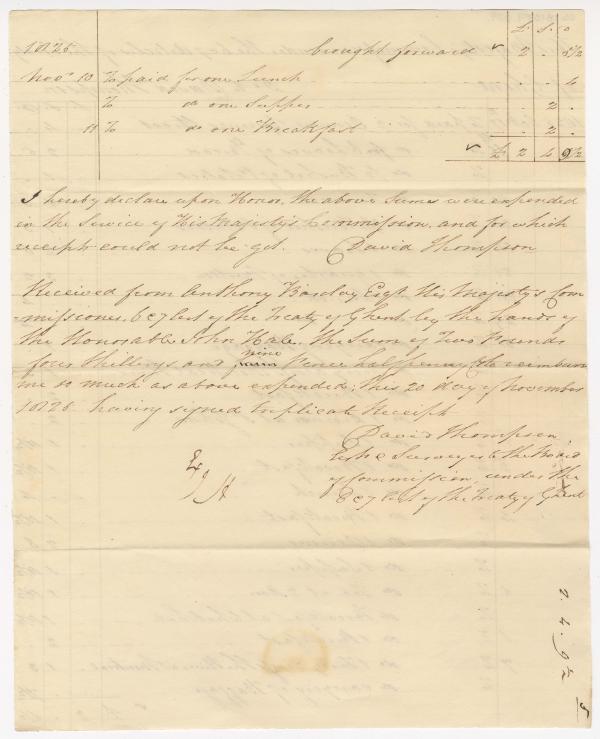 £ s. D
1825. brought forward ✓ 2 . 5½
Nov. 10 To paid for one Lunch . . 4
To do one Supper . 2 .
11 To do one Breakfast . 2 .
✓ £ 2 4 9½
I hereby declare upon Honor, the above Sums were expended
in the Service of His Majesty's Commission, and for which
receipts could not be got. David Thompson
Received from Anthony Barclay Esqr. His Majesty's Com
-missioner, 6 & 7 art of the Treaty of Ghent by the hands of
the Honorable John Hale. The Sum of Two Pounds
nine
four Shillings and Pence halfpenny, to reimburse
me so much as above expended; this 20 day of November
1825 having signed Triplicate Receipt
David Thompson,
& Surveyor to the Board
of Commission, under the
6 & 7 art of the Treaty of Ghent
Ex
J H
2. 4. 9½
5